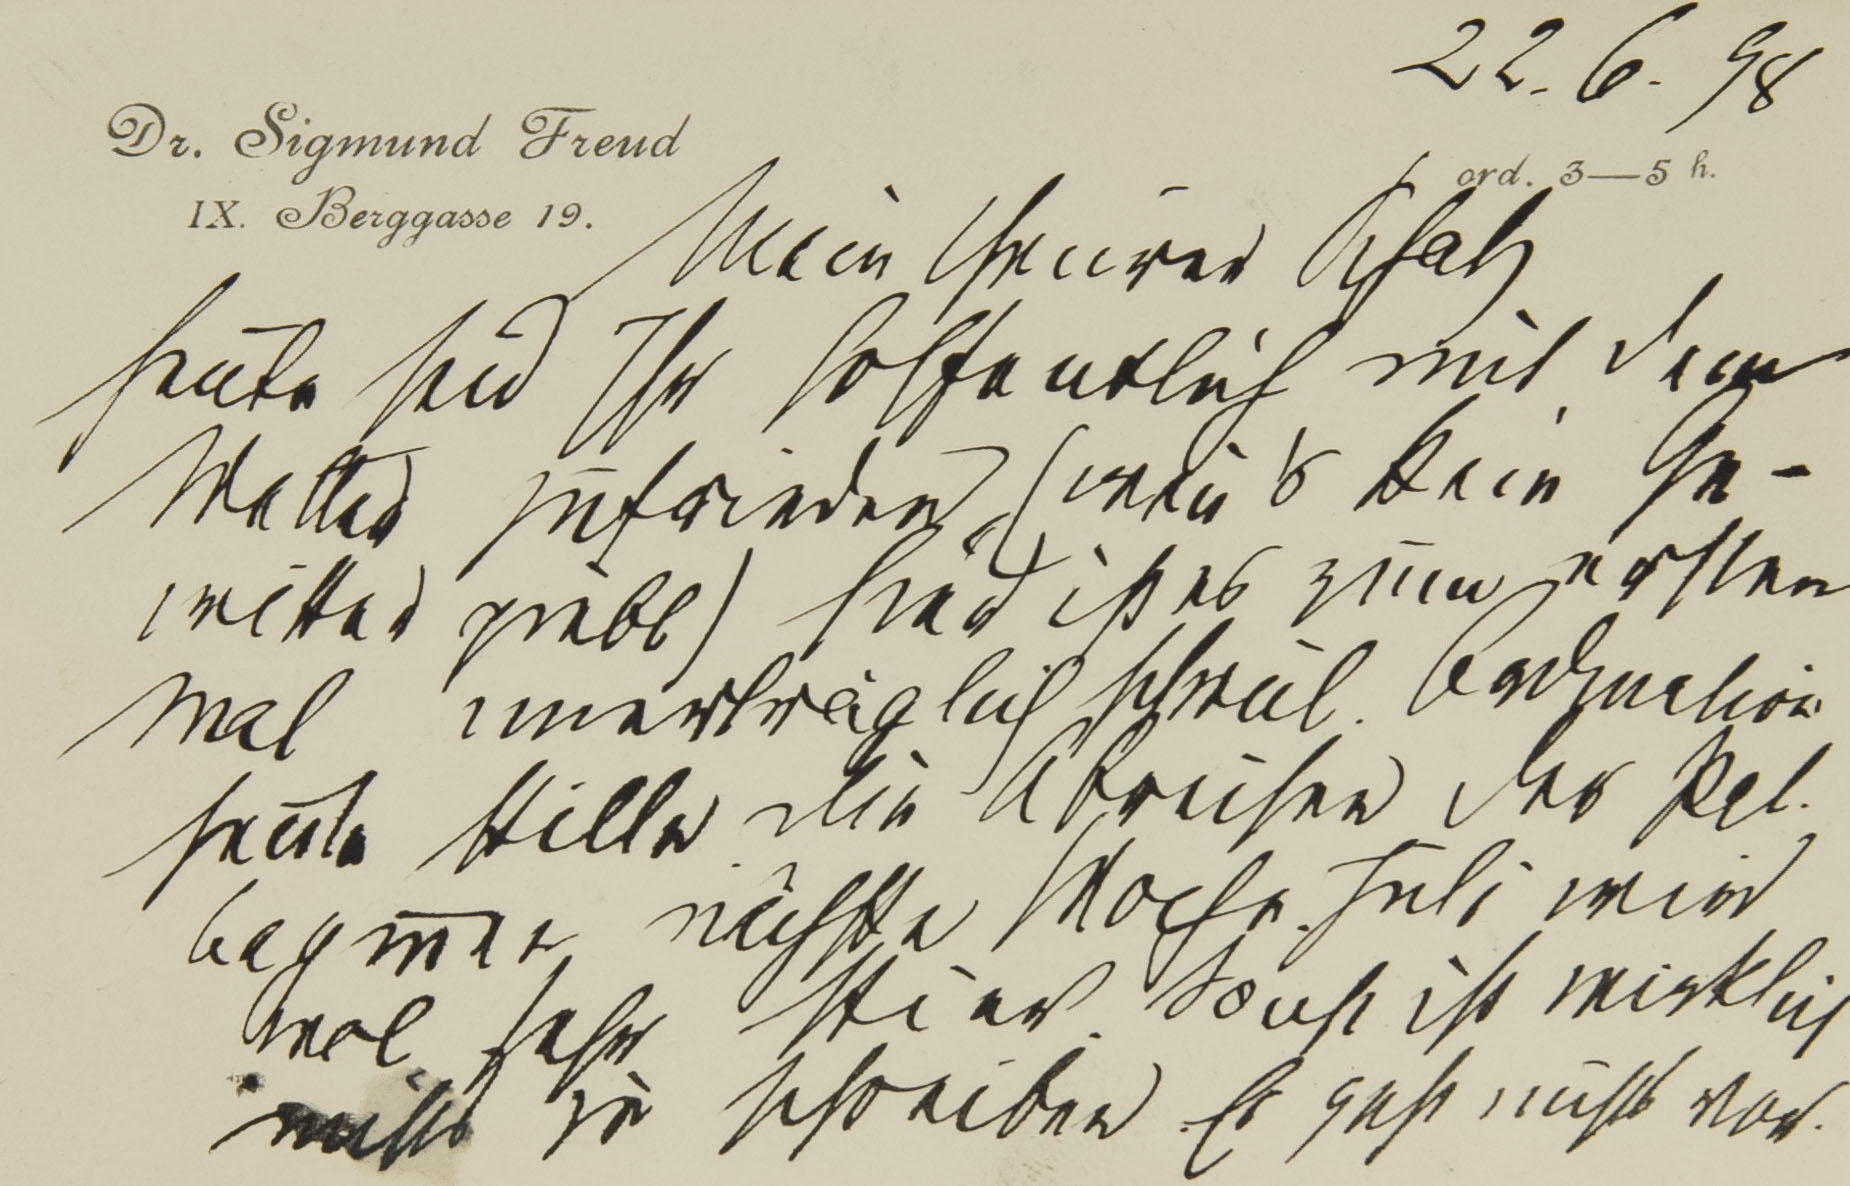 22.6.98
Dr. Sigmund Freud
IX. Berggasse 19.
ord. 3—5 h.
Mein theurer Schatz
heute seid Ihr hoffentlich mit dem
Wetter zufrieden, (wenn's kein Ge-
witter giebt) hier ist es zum ersten
Mal unerträglich schwül. Ordination
heute stille, die Abreisen der Pat.
beginnen nächste Woche. Juli wird
wol sehr stier. Sonst ist wirklich
nichts zu schreiben. Es geht nichts vor.